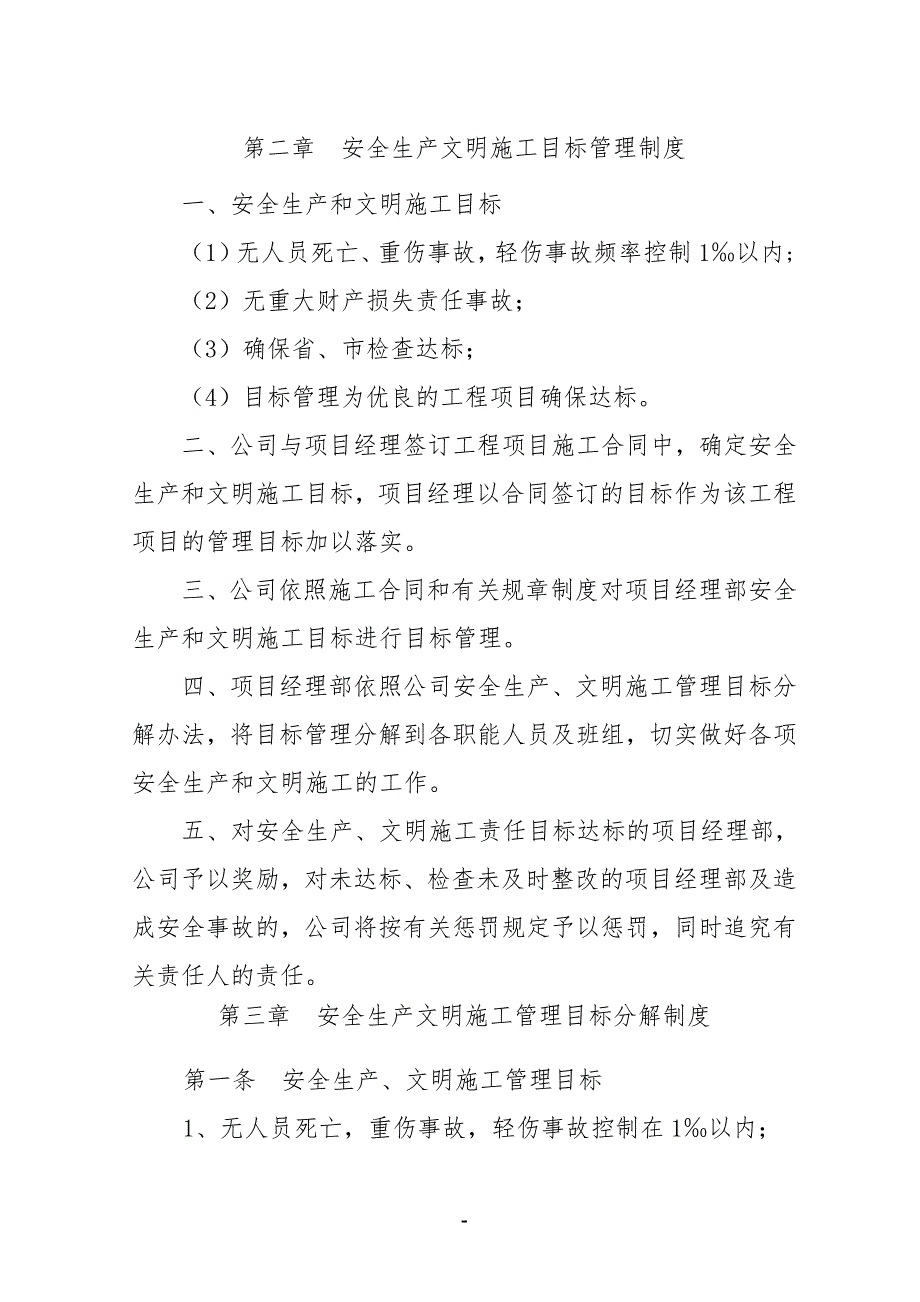 第二章　安全生产文明施工目标管理制度
一、安全生产和文明施工目标
（1）无人员死亡、重伤事故，轻伤事故频率控制1‰以内；
（2）无重大财产损失责任事故；
（3）确保省、市检查达标；
（4）目标管理为优良的工程项目确保达标。
二、公司与项目经理签订工程项目施工合同中，确定安全
生产和文明施工目标，项目经理以合同签订的目标作为该工程
项目的管理目标加以落实。
三、公司依照施工合同和有关规章制度对项目经理部安全
生产和文明施工目标进行目标管理。
四、项目经理部依照公司安全生产、文明施工管理目标分
解办法，将目标管理分解到各职能人员及班组，切实做好各项
安全生产和文明施工的工作。
五、对安全生产、文明施工责任目标达标的项目经理部，
公司予以奖励，对未达标、检查未及时整改的项目经理部及造
成安全事故的，公司将按有关惩罚规定予以惩罚，同时追究有
关责任人的责任。
第三章　安全生产文明施工管理目标分解制度
第一条　安全生产、文明施工管理目标
1、无人员死亡，重伤事故，轻伤事故控制在1‰以内；
-